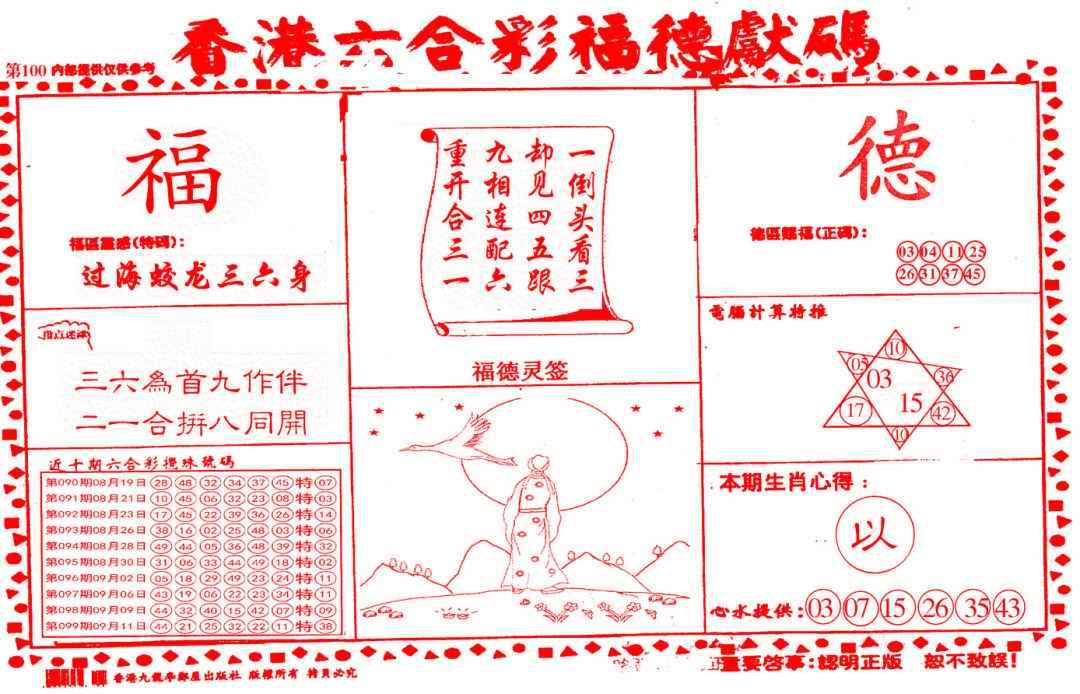 香港六合彩福德獻碼
第100 内部提供仅供参考
福
福區靈感(特碼):
过海蛟龙三六身
指点迷津
三六為首九作伴
二一合拼八同開
近十期六合彩攪珠號碼
第090期08月19日 28 48 32 34 37 45 特 07
第091期08月21日 10 45 06 32 23 08 特 03
第092期08月23日 17 45 22 39 36 26 特 14
第093期08月26日 38 16 02 25 48 03 特 06
第094期08月28日 49 44 05 36 48 39 特 32
第095期08月30日 31 06 33 44 49 18 特 02
第096期09月02日 05 18 29 49 23 24 特 11
第097期09月06日 43 19 06 22 23 34 特 11
第098期09月09日 44 32 40 15 42 07 特 09
第099期09月11日 44 21 25 32 22 11 特 38
一倒头看三
却见四五跟
九相连配六
重开合三一
福德灵签
德
德區賜福(正碼):
03 04 11 25
26 31 37 45
電腦計算特推
10
05 03 36
17 15 42
10
本期生肖心得:
以
心水提供:03 07 15 26 35 43
香港九龍學鄰屋出版社 版權所有 特員必究
重要啓事:認明正版 恕不致誤!